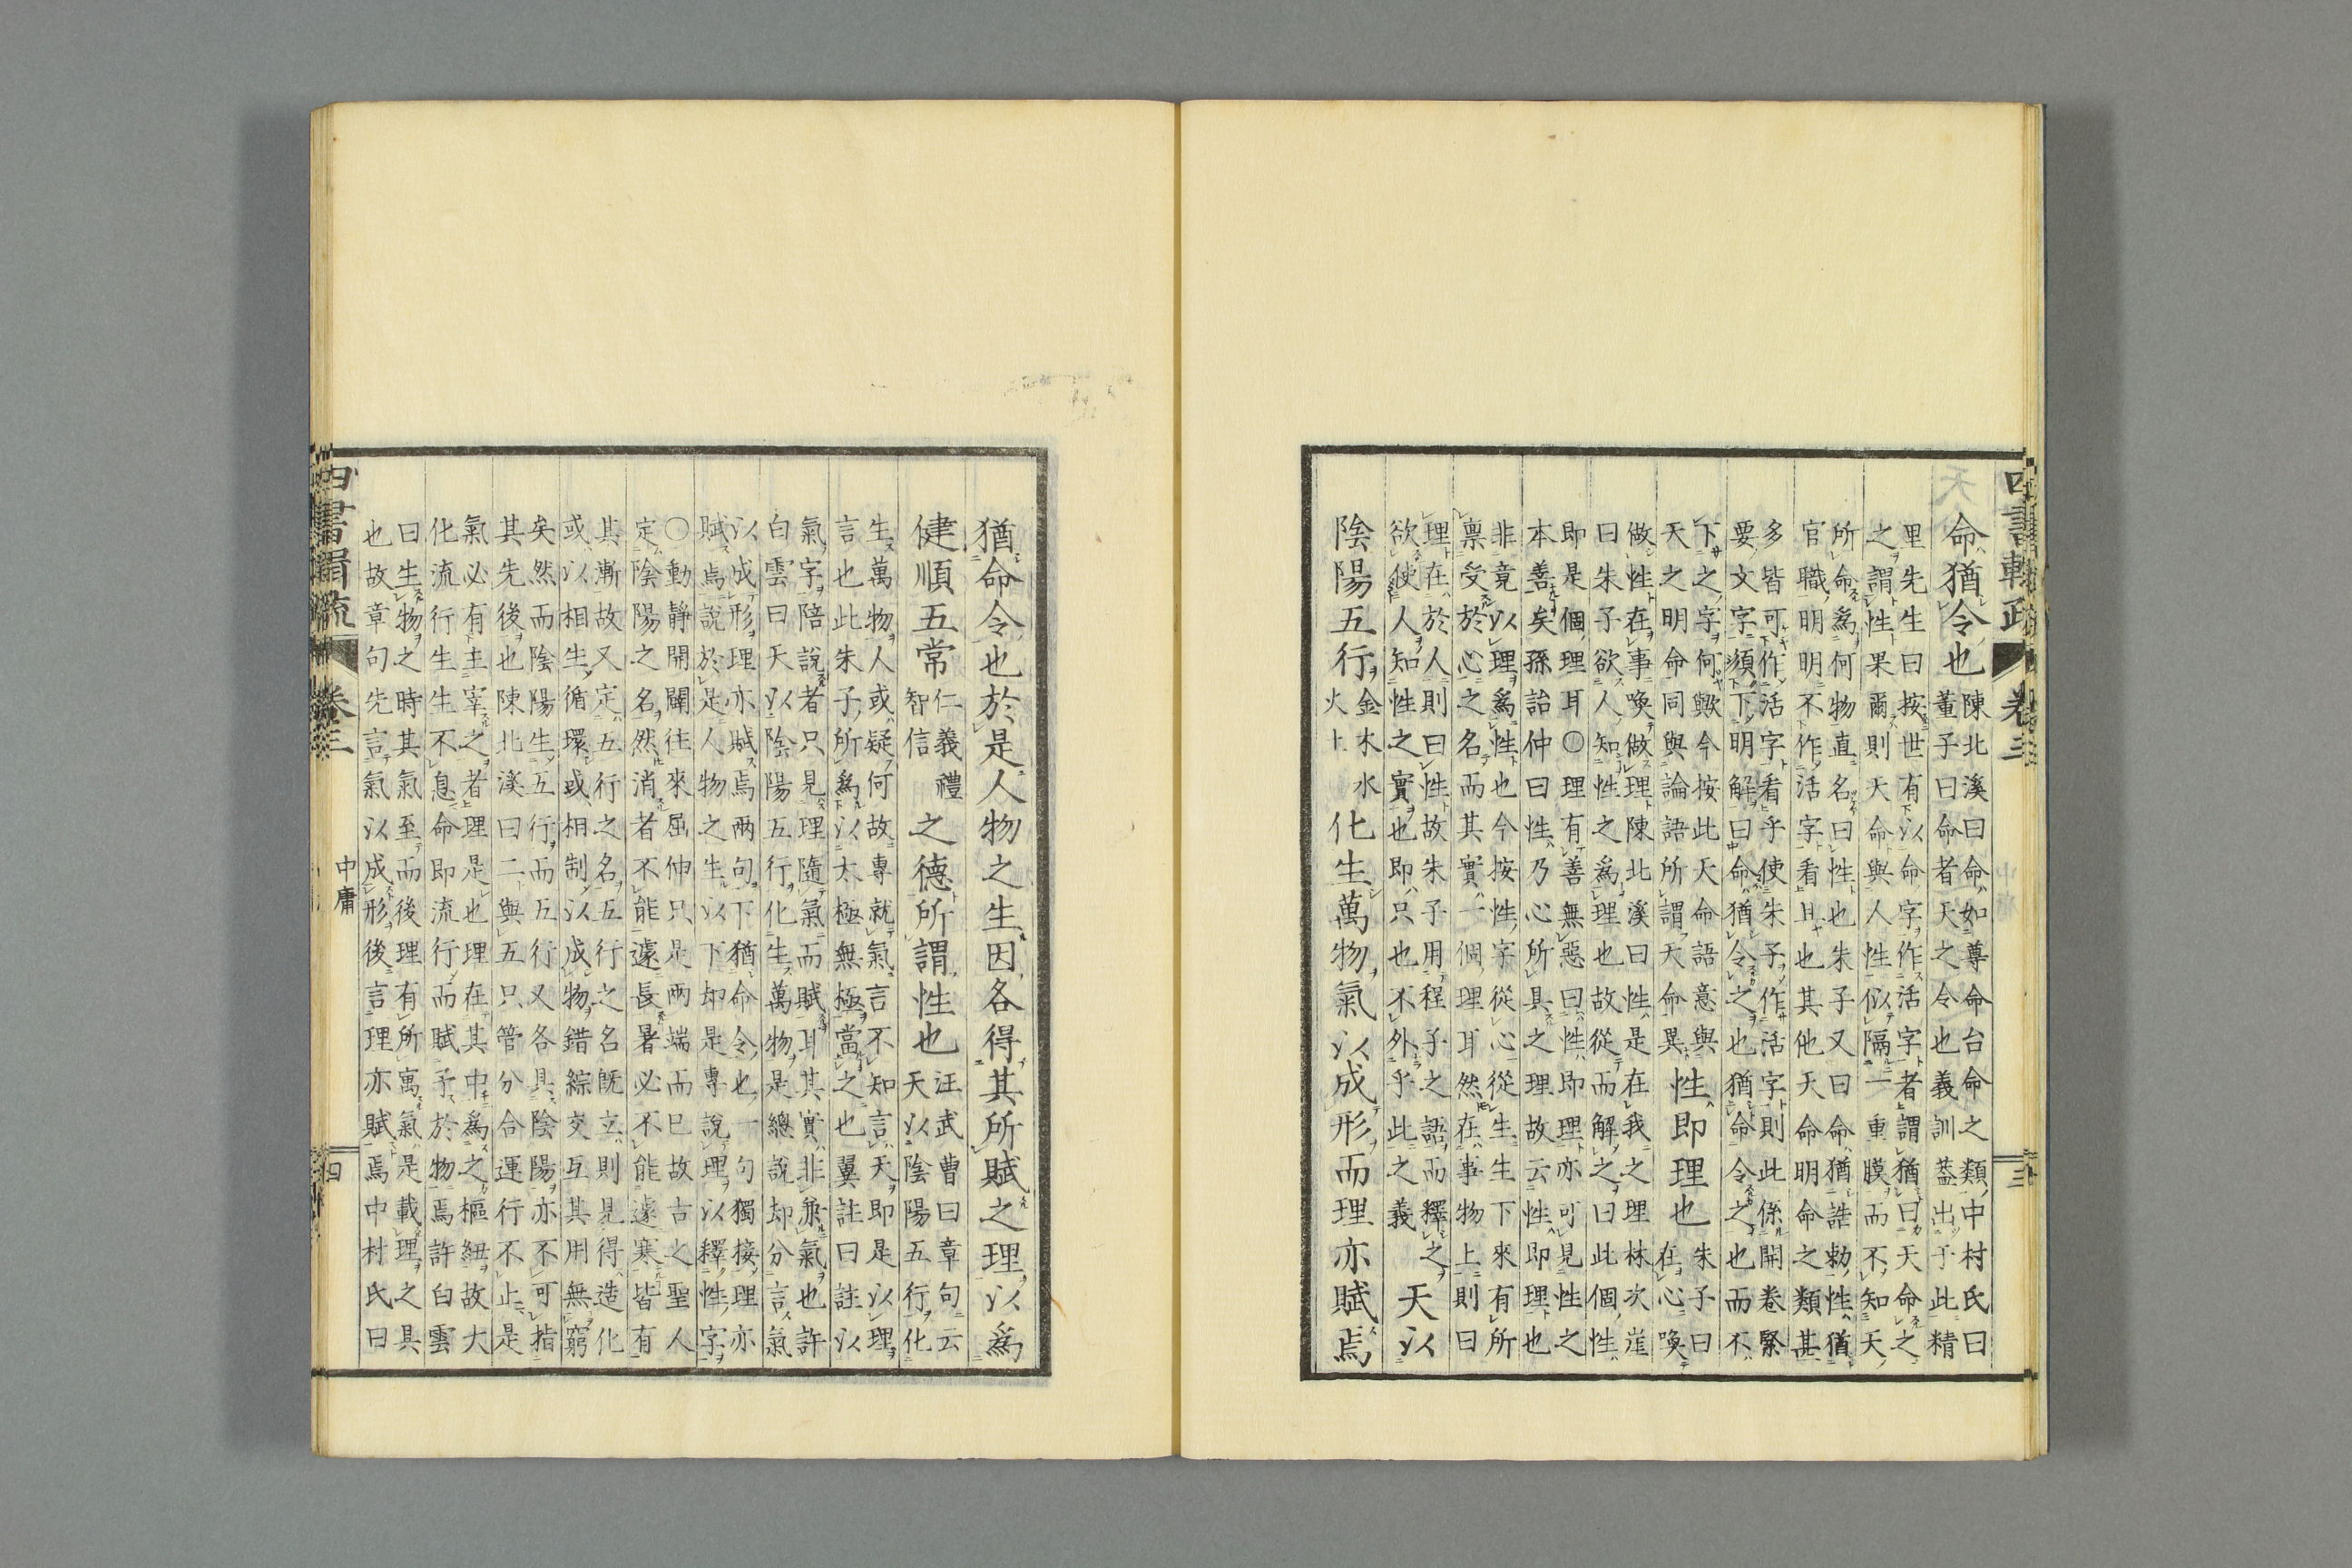 四書輯疏 卷三 三
命猶令也
陳北溪曰命如尊命台命之類中村氏曰
董子曰命者天之令也義訓葢出于此精
里先生曰按世有以命字作活字者謂猶曰天命之
之謂性果爾則天命與人性似隔一重膜而不知天
所命爲何物直名曰性也朱子又曰命猶誥勅性猶
官職明明不作活字看且也其他天命明命之類甚
多皆可作活字看乎使朱子作活字則此係開卷緊
要文字須下明解曰命猶令之也猶命令之也而不
下之字何歟今按此天命語意與
天之明命同與論語所謂天命異
性即理也
朱子曰
在心喚
做性在事喚做理陳北溪曰性是在我之理林次崖
曰朱子欲人知性之爲理也故從而解之曰此個性
即是個理耳○理有善無惡曰性即理亦可見性之
本善矣孫詒仲曰性乃心所具之理故云性即理也
非竟以理爲性也今按性字從心從生生下來有所
禀受於心之名而其實一個理耳然在事物上則曰
理在於人則曰性故朱子用程子之語而釋之
欲使人知性之實也即只也不外乎此之義
天以
陰陽五行
金木水
火土
化生萬物氣以成形而理亦賦焉
猶命令也於是人物之生因各得其所賦之理以爲
健順五常
仁義禮
智信
之德所謂性也
汪武曹曰章句云
天以陰陽五行化
生萬物人或疑何故專就氣言不知言天即是以理
言也此朱子所爲以太極無極當之也翼註曰註以
氣字陪說者只見理隨氣而賦耳其實非兼氣也許
白雲曰天以陰陽五行化生萬物是總說却分言氣
以成形理亦賦焉兩句下猶命令也一句獨接理亦
賦焉說於是人物之生以下却是專說理以釋性字
○動靜開闢往來屈伸只是兩端而已故古之聖人
定陰陽之名然消者不能遽長暑必不能遽寒皆有
其漸故又定五行之名五行之名既立則見得造化
或以相生循環或相制以成物錯綜交互其用無窮
矣然而陰陽生五行而五行又各具陰陽亦不可指
其先後也陳北溪曰二與五只管分合運行不止是
氣必有主宰之者理是也理在其中爲之樞紐故大
化流行生生不息命即流行而賦予於物焉許白雲
曰生物之時其氣至而後理有所寓氣是載理之具
也故章句先言氣以成形後言理亦賦焉中村氏曰
四書輯疏 卷三 中庸 四